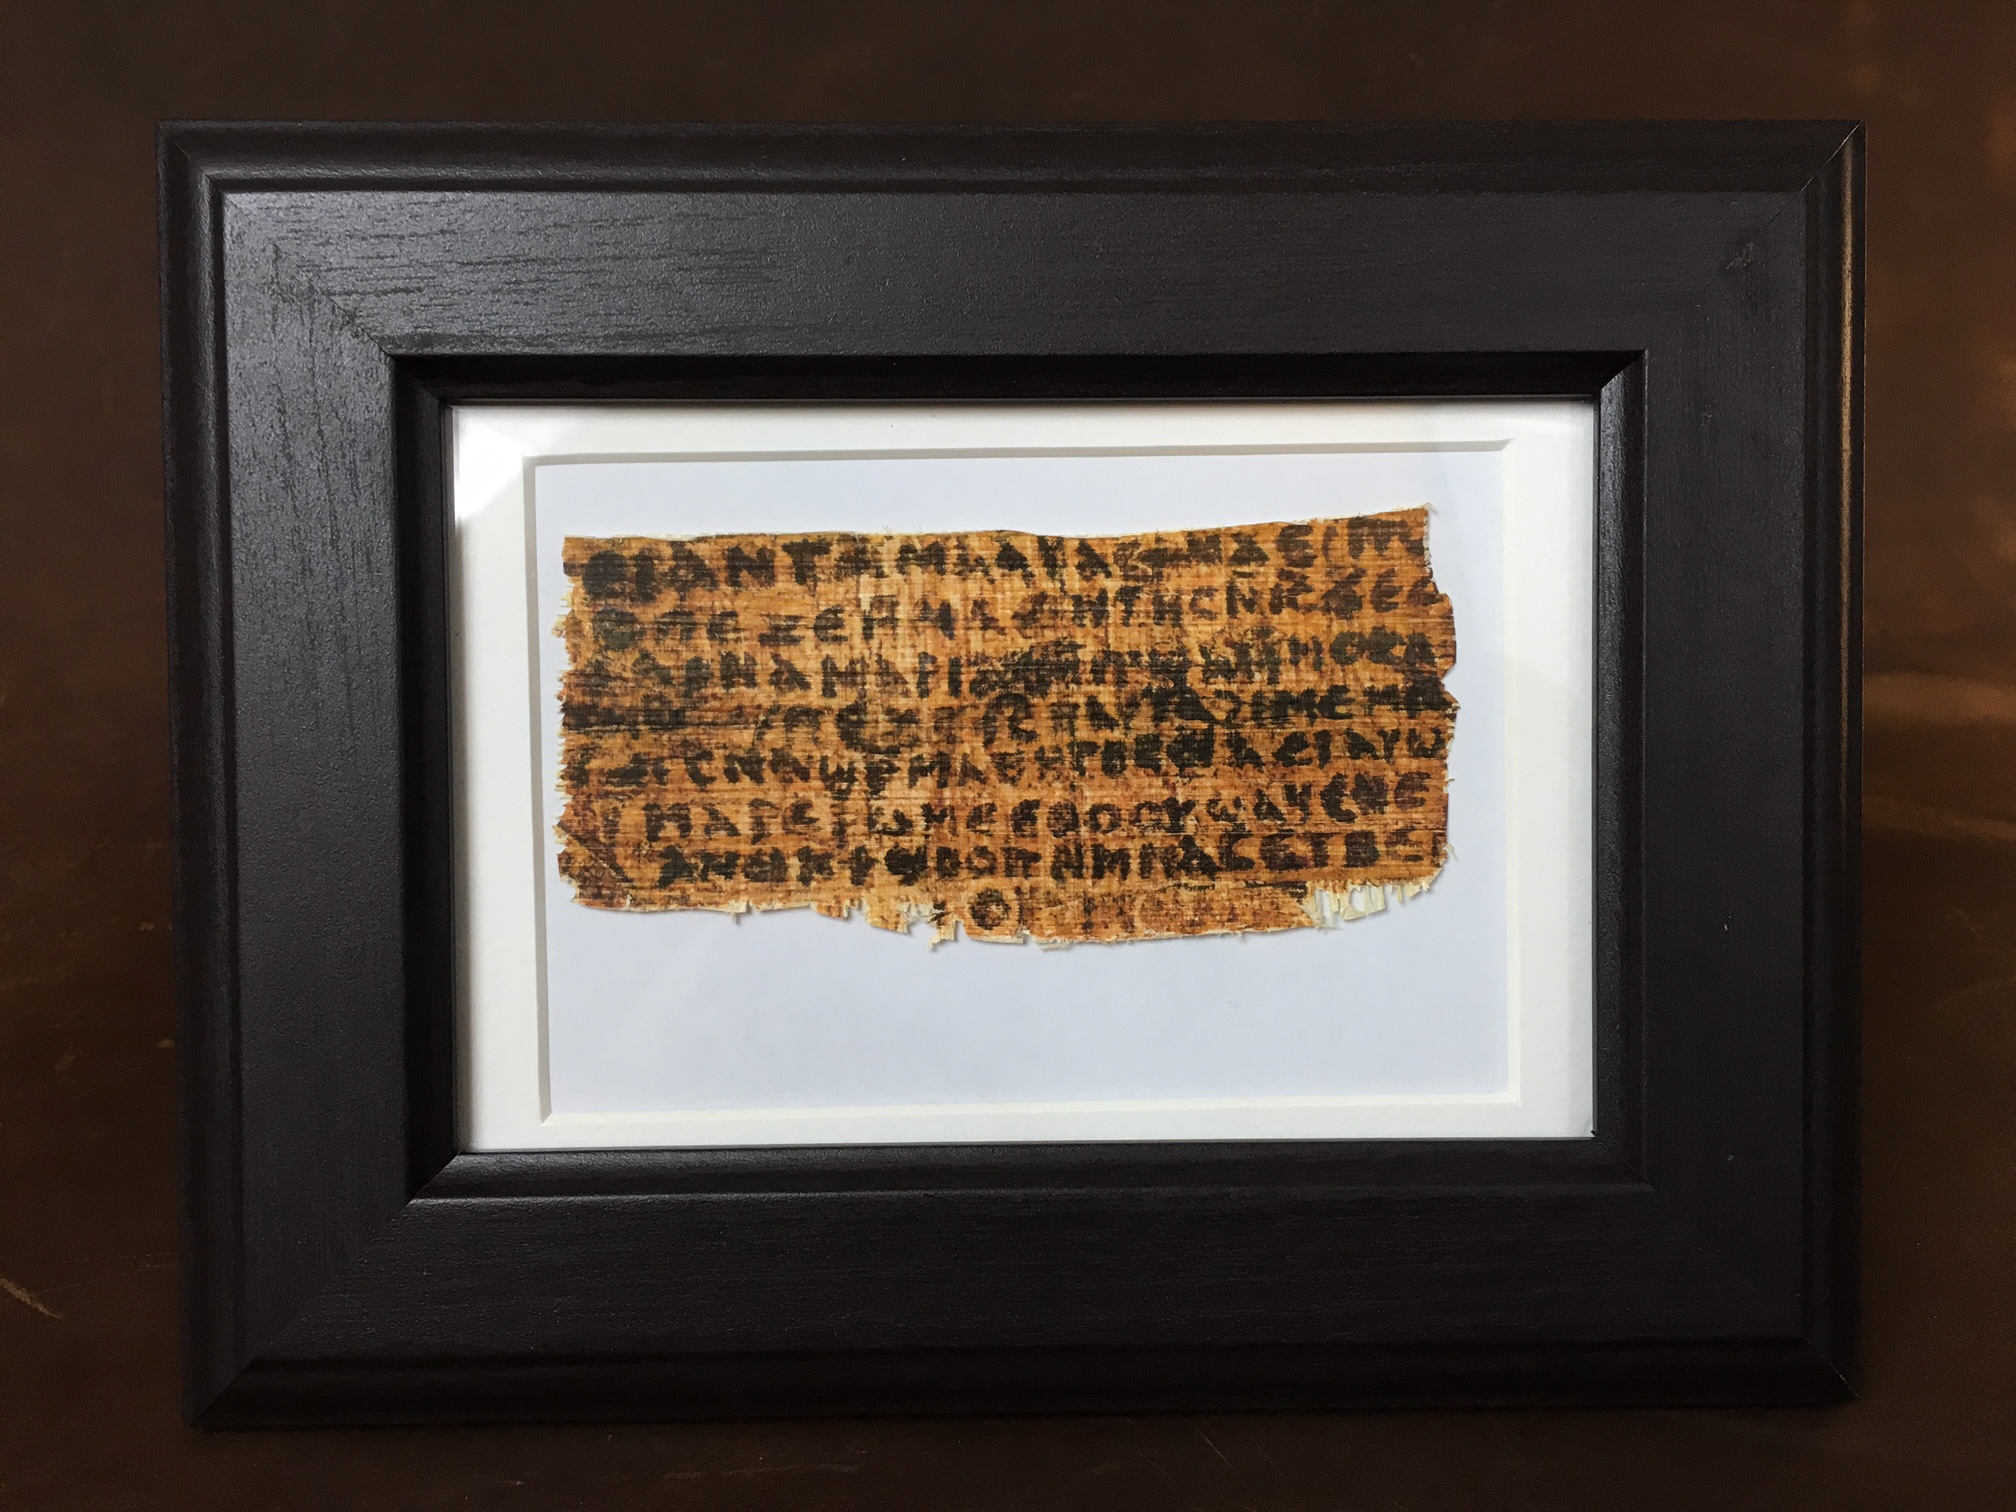 ⲉⲓ ⲁⲛ ⲧⲁⲙⲁⲁⲩ ⲁⲥϯ ⲛⲁⲉⲓ ⲡⲱ
ⲡⲉϫⲉ ⲙⲙⲁⲑⲏⲧⲏⲥ ⲛⲓⲥ ϫⲉ ⲥ
ⲁⲣⲛⲁ ⲙⲁⲣⲓⲁⲙ ⲙⲡϣⲁ ⲙⲙⲟⲥ ⲁ
ⲡⲉϫⲉ ⲓⲥ ⲛⲁⲩ ⲧⲁϩⲓⲙⲉ ⲙⲛ
ⲥⲛⲁϣⲣⲙⲁⲑⲏⲧⲏⲥ ⲛⲁⲉⲓ ⲁⲩⲱ
ⲙⲁⲣⲉ ⲣⲱⲙⲉ ⲉⲑⲟⲟⲩ ϣⲁϥⲉ ⲛⲉ
ⲁⲛⲟⲕ ϯϣⲟⲟⲡ ⲛⲙⲙⲁⲥ ⲉⲧⲃⲉ ⲡ